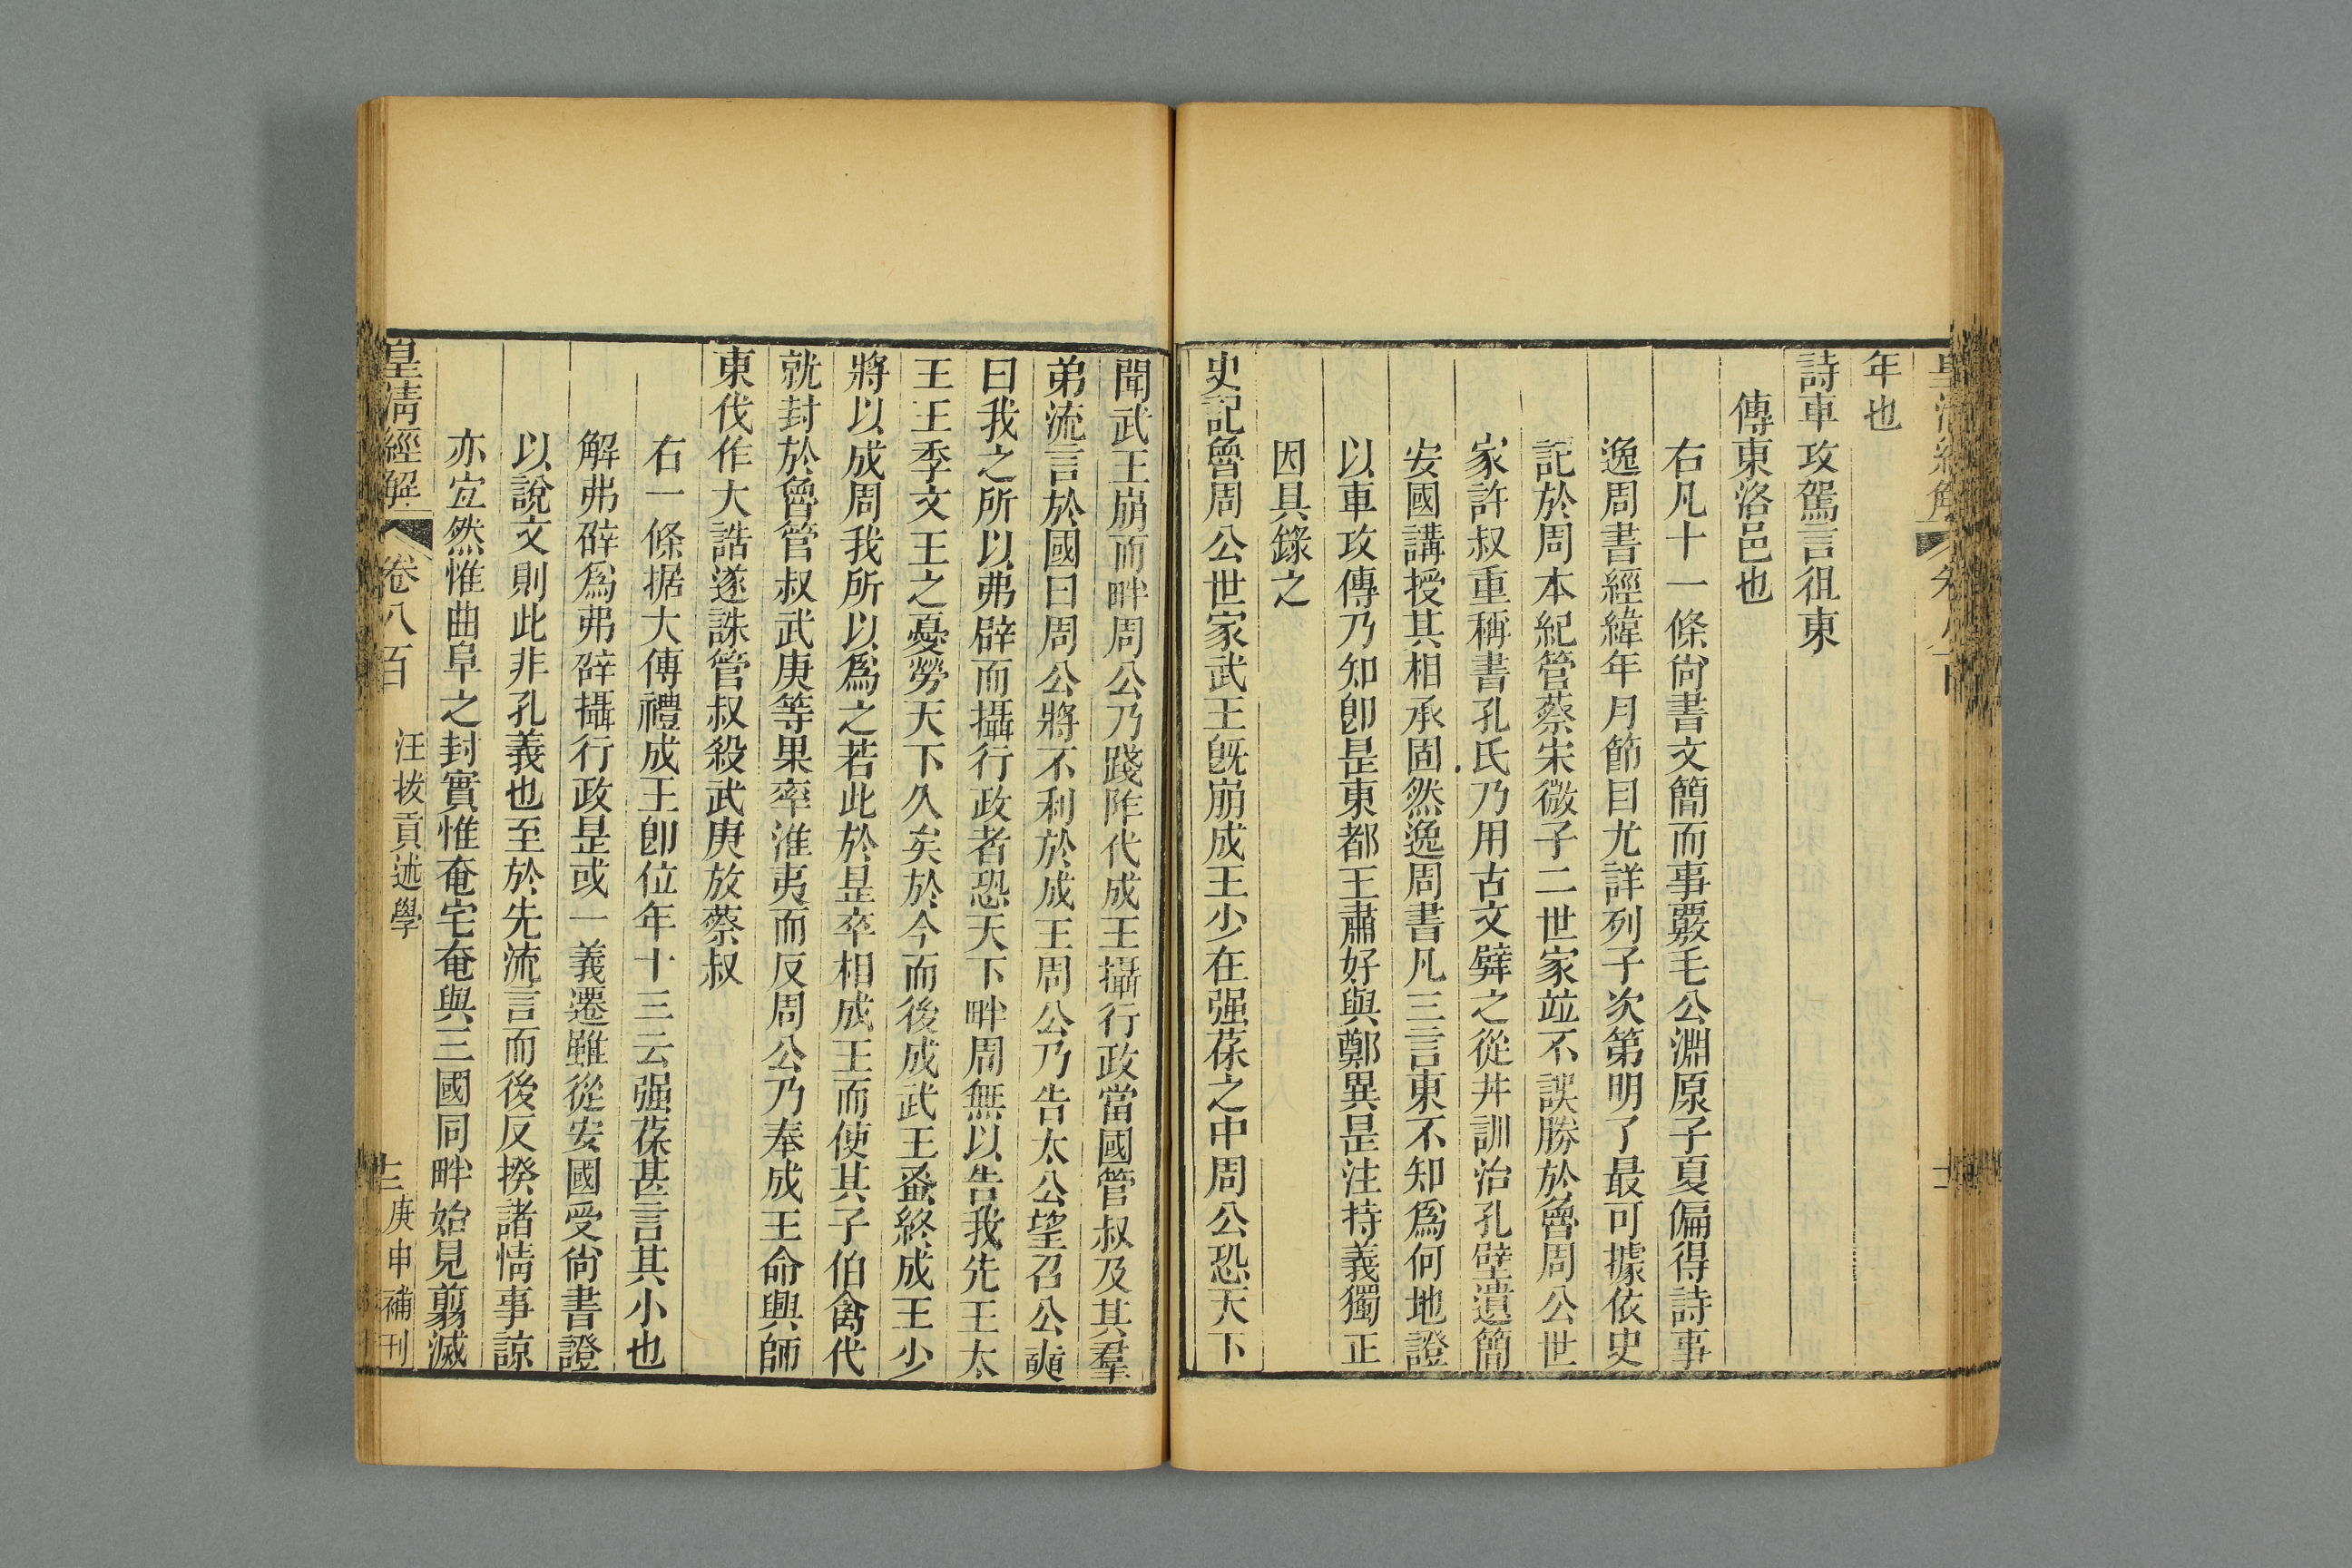 年也
詩車攻駕言徂東
傳東洛邑也
右凡十一條尙書文簡而事覈毛公淵原子夏偏得詩事
逸周書經緯年月節目尤詳列子次第明了最可據依史
記於周本紀管蔡宋微子二世家竝不誤勝於魯周公世
家許叔重稱書孔氏乃用古文㢸之從丼訓治孔壁遺簡
安國講授其相承固然逸周書凡三言東不知爲何地證
以車攻傳乃知卽是東都王肅好與鄭異是注持義獨正
因具錄之
史記魯周公世家武王旣崩成王少在强葆之中周公恐天下
聞武王崩而畔周公乃踐阼代成王攝行政當國管叔及其羣
弟流言於國曰周公將不利於成王周公乃告太公望召公奭
曰我之所以弗辟而攝行政者恐天下畔周無以告我先王太
王王季文王之憂勞天下久矣於今而後成武王蚤終成王少
將以成周我所以爲之若此於是卒相成王而使其子伯禽代
就封於魯管叔武庚等果率淮夷而反周公乃奉成王命興師
東伐作大誥遂誅管叔殺武庚放蔡叔
右一條据大傳禮成王卽位年十三云强葆甚言其小也
解弗辟爲弗辟攝行政是或一義遷雖從安國受尙書證
以說文則此非孔義也至於先流言而後反揆諸情事諒
亦宜然惟曲阜之封實惟奄宅奄與三國同畔始見翦滅
皇淸經解 卷八百 汪拔貢述學 十二 庚申補刊